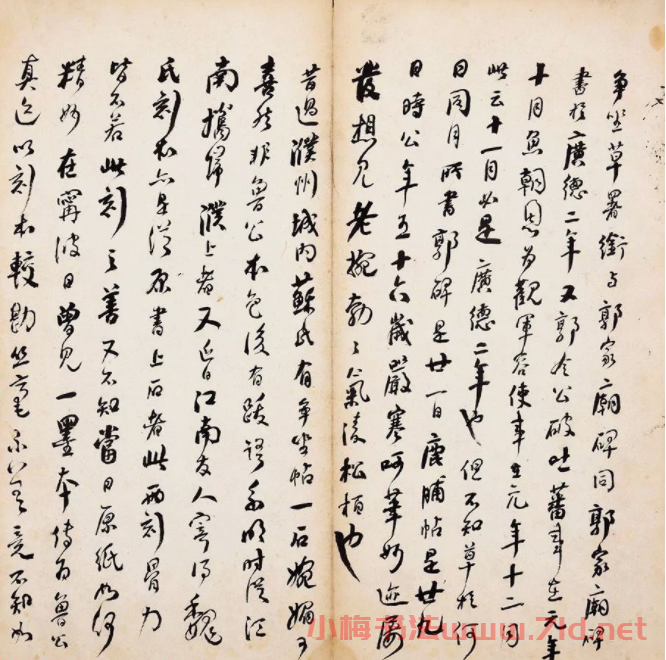 争坐草署衔与郭家廟碑同郭家廟碑
書於廣德二年又郭令公破吐蕃事在元年
十月魚朝恩为觀軍容使事在元年十二月
此云十一月必是廣德二年也但不知草於何
日同月所書郭碑是廿一日鹿脯帖是廿九
日時公年五十六歲嚴寒呵筆妙迹
發想見老腕勃々氣凌松柏也
昔過濮州城内蘇氏有争坐帖一石婉媚可
喜然非魯公本色後有跋謂明时從江
南攜歸濮上者又近日江南友人寄得魏
氏刻本亦是從原書上石者此兩刻骨力
皆不若此刻之善又不知當日原紙如何
精妙在寧波日曾見一墨本傳为魯公
真迹以刻本較勘丝毫不竟不知如
小梅书法www.7ld.net